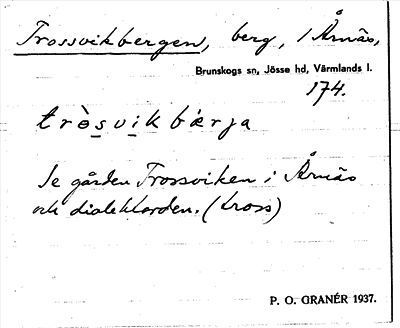 Trossvikbergen, berg, / Årnäs,
Brunskogs sn, Jösse hd, Värmlands l.
174.
trèsvikbærja
Se gården Trossviken i Årnäs
och dialektorden. (tross)
P. O. GRANÉR 1937.